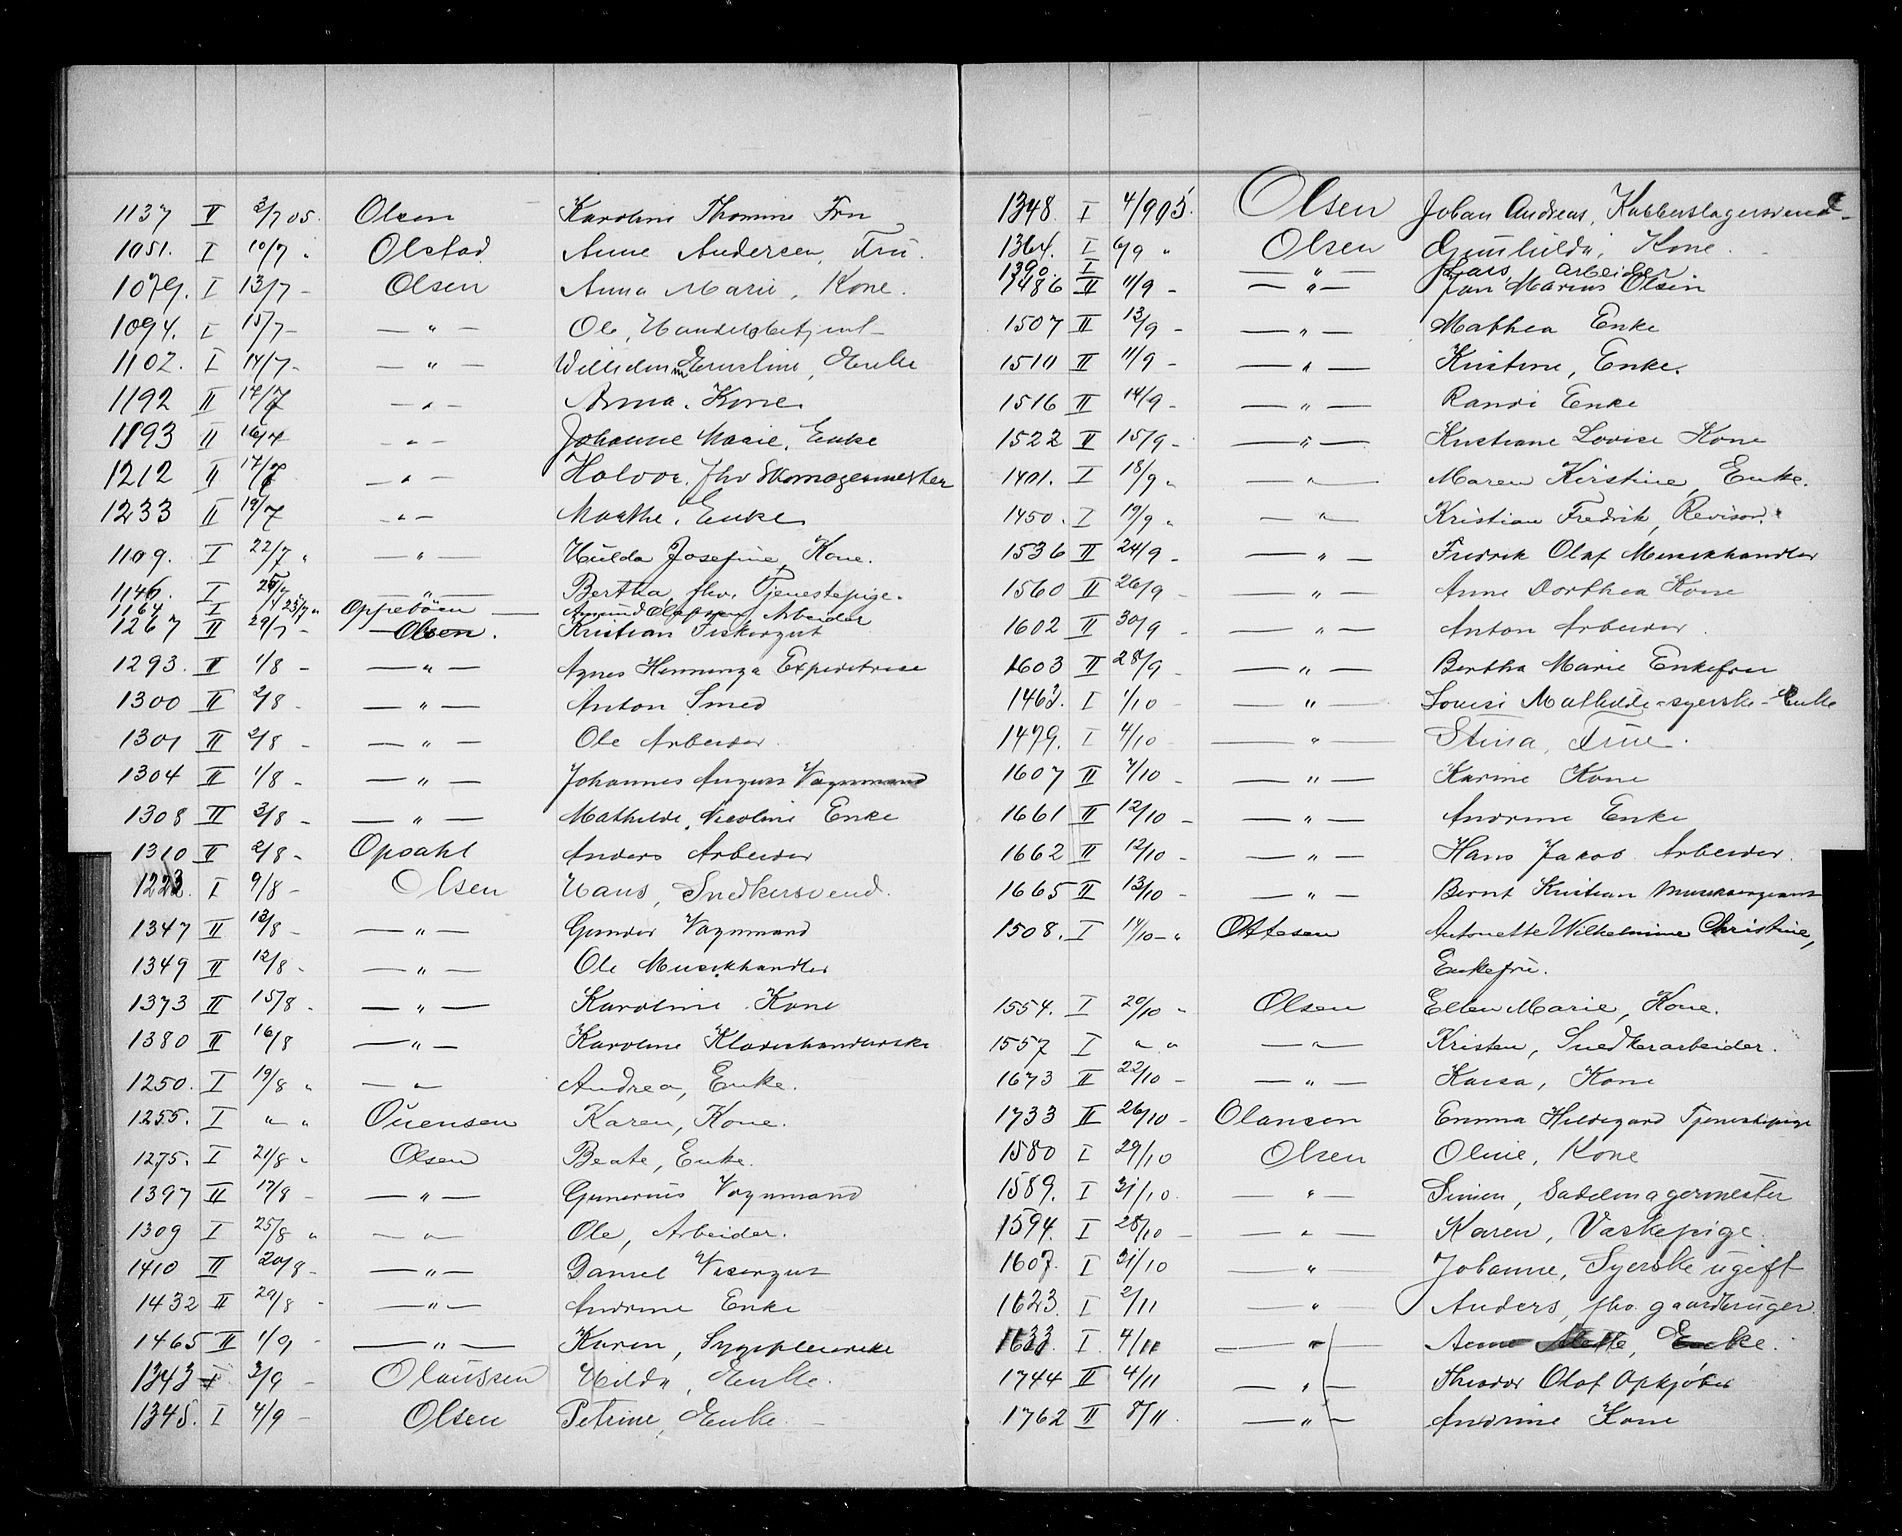 1137 II 3/7 05. Olsen Karoline Thomine Fru
1051. I 10/7 " Olstad Anne Andersen, Fru.
1079. I 13/7 - Olsen Anna Marie, Kone.
1094. I 15/7 - — " — Ole, Handelsbetjent
1102. I 14/7 - — " — Ernestine, Enke
1192 II 12/7 — " — Anna. Kone.
1193 II 16/7 — " — Johanne Marie, Enke
1212 II 17/7 — " — Halvor. fhv Skomagermester
1233 II 19/7 — " — Marthe. Enke
1109. I 22/7 " — " — Hulda Josefine, Kone.
1146. I 25/7 — " — Bertha, fhv. Tjenestepige.
1164 I 23/7 " Oppeböen — Amund Olafssen, Arbeider
1267 II 29/7 - Olsen. Kristian Fiskergut
1293. II 1/8 - — " — Agnes Henninga Expeditrise
1300 II 2/8 - — " — Anton Smed
1301 II 2/8 - — " — Ole Arbeider
1304 II 1/8 - — " — Johannes August Vognmand
1308 II 3/8 - — " — Mathilde, Nicoline Enke
1310 II 2/8 - Opdahl Anders Arbeider
1223. I 9/8 - Olsen Hans, Snedkersvend.
1347 II 13/8 - — " — Gunder Vognmand
1349 II 12/8 - — " — Ole Musikhandler
1373 II 15/8 - — " — Karoline Kone
1380 II 16/8 — " — Karoline Kladeshandlerske
1250. I 19/8 " — " — Andrea, Enke.
1255. I " " Ouensen Karen, Kone.
1275. I 21/8 " Olsen Beate, Enke.
1397 II 17/8 - — " — Gunerius Vognmand
1309 I 25/8 " — " — Ole, Arbeider.
1410 II 20/8 - — " — Daniel Visergut
1432 II 29/8 - — " — Andrine Enke
1465 II 1/9 - — " — Karen, Sygepleierske
1343 I 3/9 - Olaussen Hilda, Enke.
1345. I 4/9 - Olsen Petrine, Enke. -
1348. I 4/905. Olsen Johan Andreas, Kobberslagersvend
1364. I 6/9 " Olsen Gunhilda, Kone.
1390. I — " — Lars, arbeider.
1486 II 11/9 - — " — Jan Marius Olsen
1507 II 13/9 - — " — Mathea Enke
1510 II 11/9 - — " — Kristine, Enke.
1516 II 14/9 - — " — Randi Enke
1522 II 15/9 - — " — Kristiane Lovise Kone
1401. I 18/9 " — " — Maren Kirstine, Enke.
1450. I 19/9 " — " — Kristian Fredrik, Revisor.
1536 II 24/9 - — " — Fredrik Olaf Musikhandler
1560 II 26/9 - — " — Anne Dorthea Kone
1602 II 30/9 - — " — Anton Arbeider.
1603 II 28/9 - — " — Bertha Marie Enkefru
1463. I 1/10 - — " — Lovise Mathilde - syerske - Enke
1479. I 4/10 — " — Stina, Frue.
1607 II 7/10 - — " — Karine Kone
1661 II 12/10 - — " — Andrine Enke
1662 II 12/10 - — " — Hans Jakob Arbeider.
1665 II 13/10 - — " — Bernt Kristian Musiksergeant
1508. I 14/10 - " Ottesen Antonette Wilhelmine Christine,
Enkefru.
1554. I 20/10 - Olsen Ellen Marie, Kone.
1557 I " " — " — Kristen, Snedkerarbeider.
1673 II 22/10 - — " — Kaisa, Kone
1733 II 26/10 - Olansen Emma Hildegard Tjenestepige
1580 I 29/10 Olsen Oline, Kone
1589. I 31/10. — " — Simen, Sadelmagermester
1594. I 28/10 - — " — Karen, Vaskepige.
1607. I 31/10 — " — Johanne, Syerske ugift
1623. I 2/11 — " — Anders, fhv. gaardbruger.
1633. I. 4/11 — " — Anne Mette, Enke.
1744 II 4/11 — " — Theodor Olaf Opkjøber
1762 II 8/11. — " — Andrine Kone